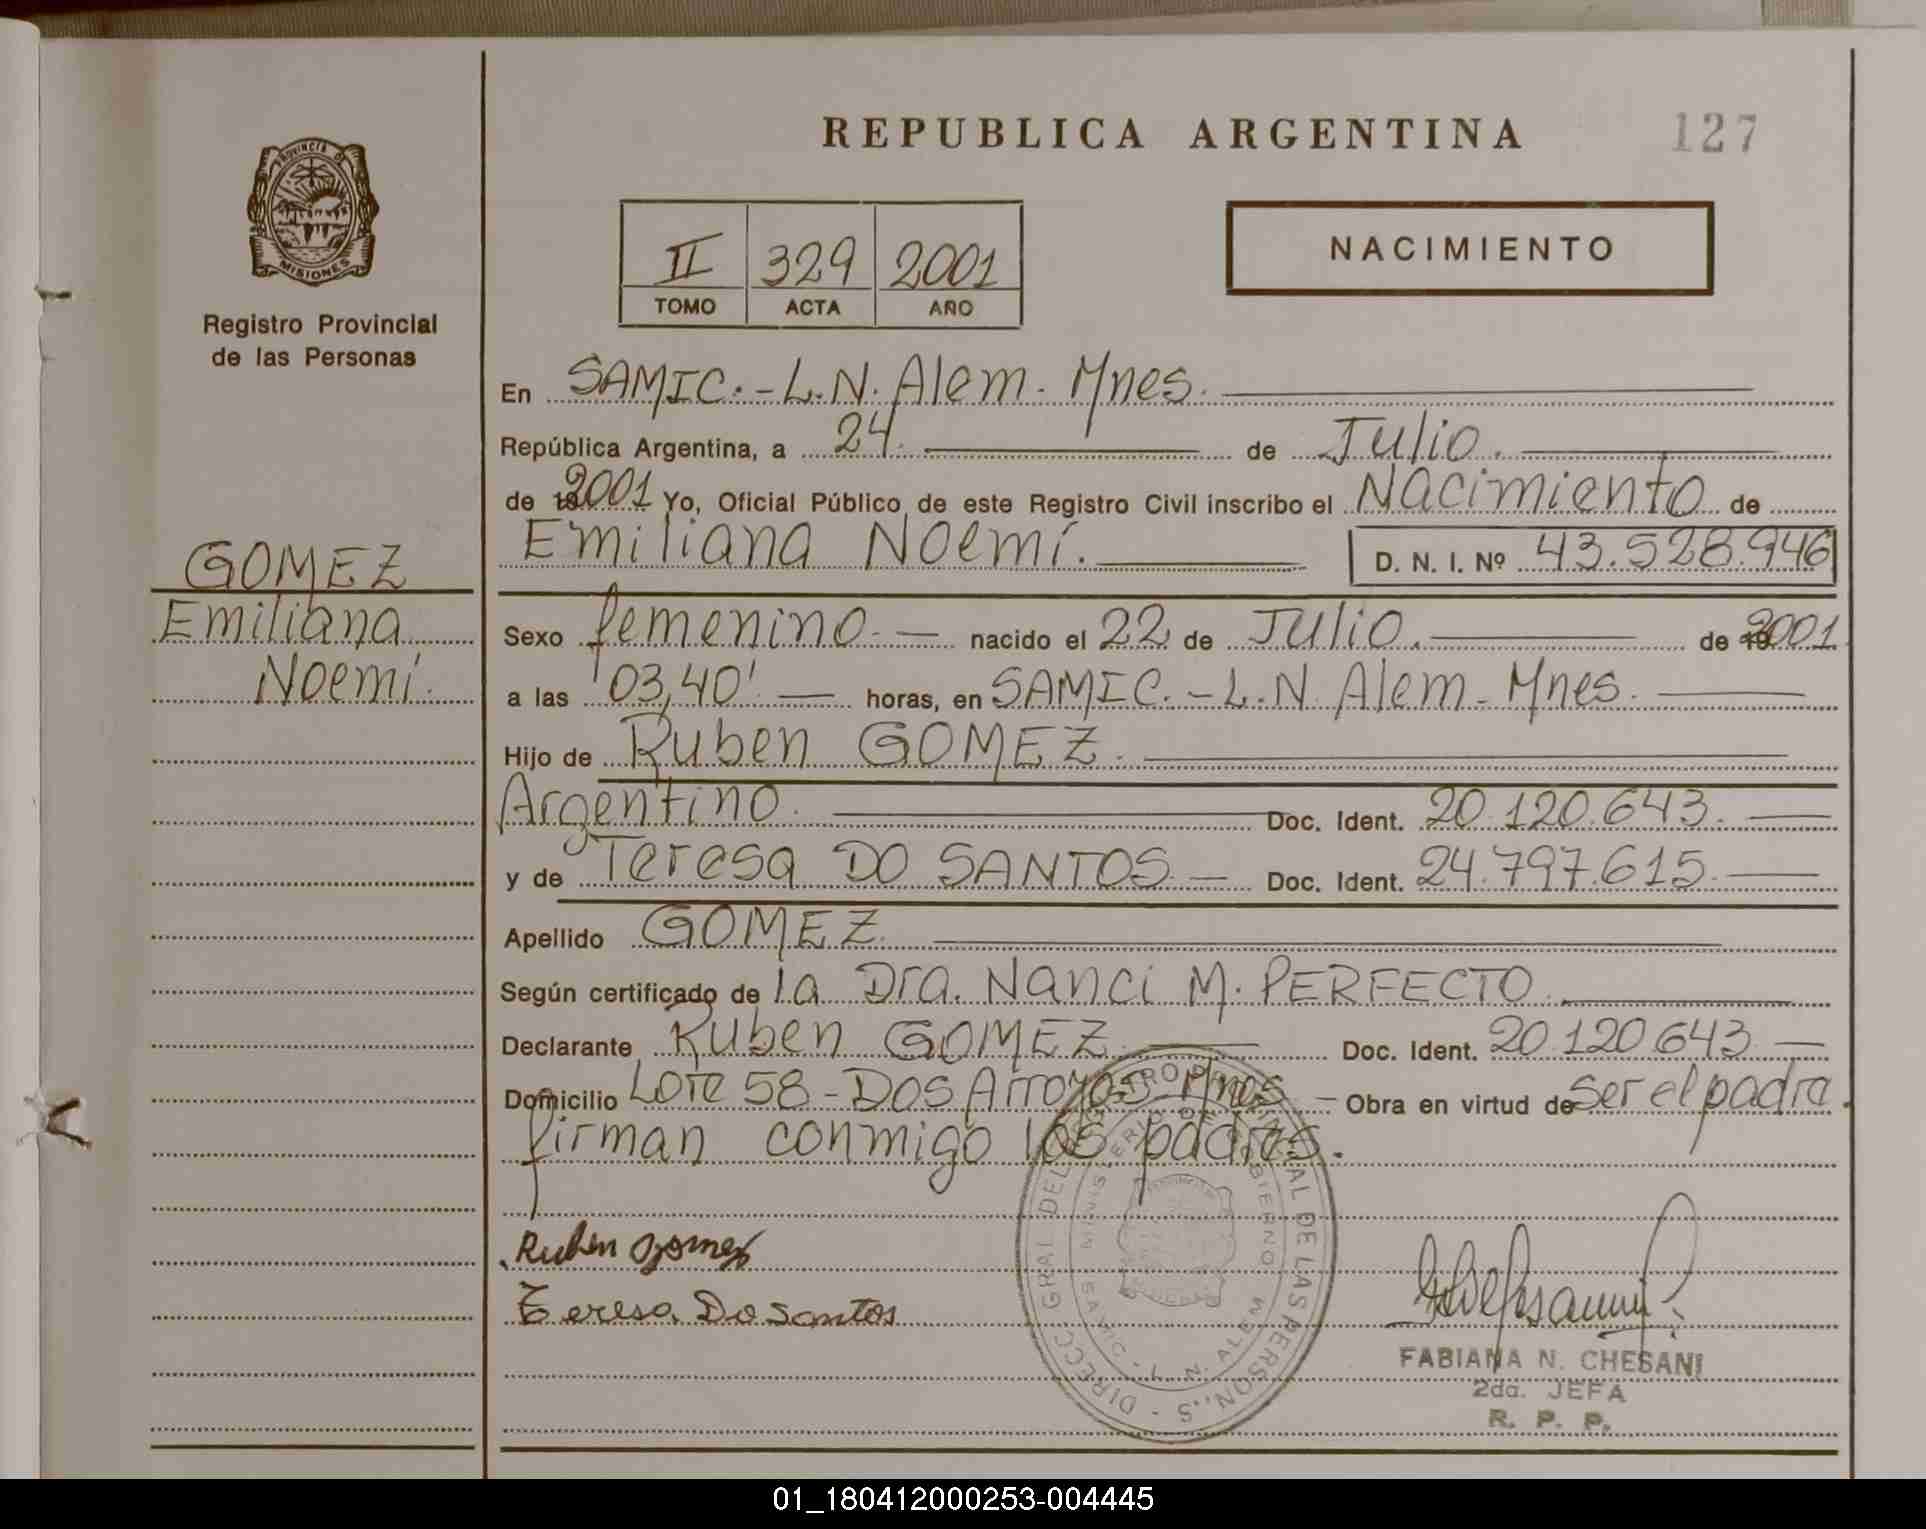 REPUBLICA ARGENTINA
127
PROVINCIA DE
MISIONES
Registro Provincial
de las Personas
II 329 2001
TOMO ACTA AÑO
NACIMIENTO
En SAMIC.-L.N. Alem. Mnes.
República Argentina, a 24. de Julio.
de 2001 Yo, Oficial Público de este Registro Civil inscribo el Nacimiento de
Emiliana Noemí. D. N. I. Nº 43.528.946
GOMEZ
Emiliana
Noemí.
Sexo femenino.- nacido el 22 de Julio. de 2001.
a las '03,40' horas, en SAMIC.-L.N. Alem. Mnes.
Hijo de Ruben GOMEZ.
Argentino. Doc. Ident. 20.120.643.
y de Teresa DO SANTOS Doc. Ident. 24.797.615.
Apellido GOMEZ
Según certificado de la Dra. Nanci M. PERFECTO
Declarante Ruben GOMEZ Doc. Ident. 20.120.643
Domicilio Lote 58-DOS Arroyos Mnes Obra en virtud de ser el padre.
firman conmigo los padres.
Ruben Gomez
Teresa Do Santos
DIRECC GRAL DEL REGISTRO PROVINCIAL DE LAS PERSON.S
MINISTERIO DE GOBIERNO
SAMIC - L. N. ALEM
FABIANA N. CHESANI
2da. JEFA
R. P. P.
01_180412000253-004445